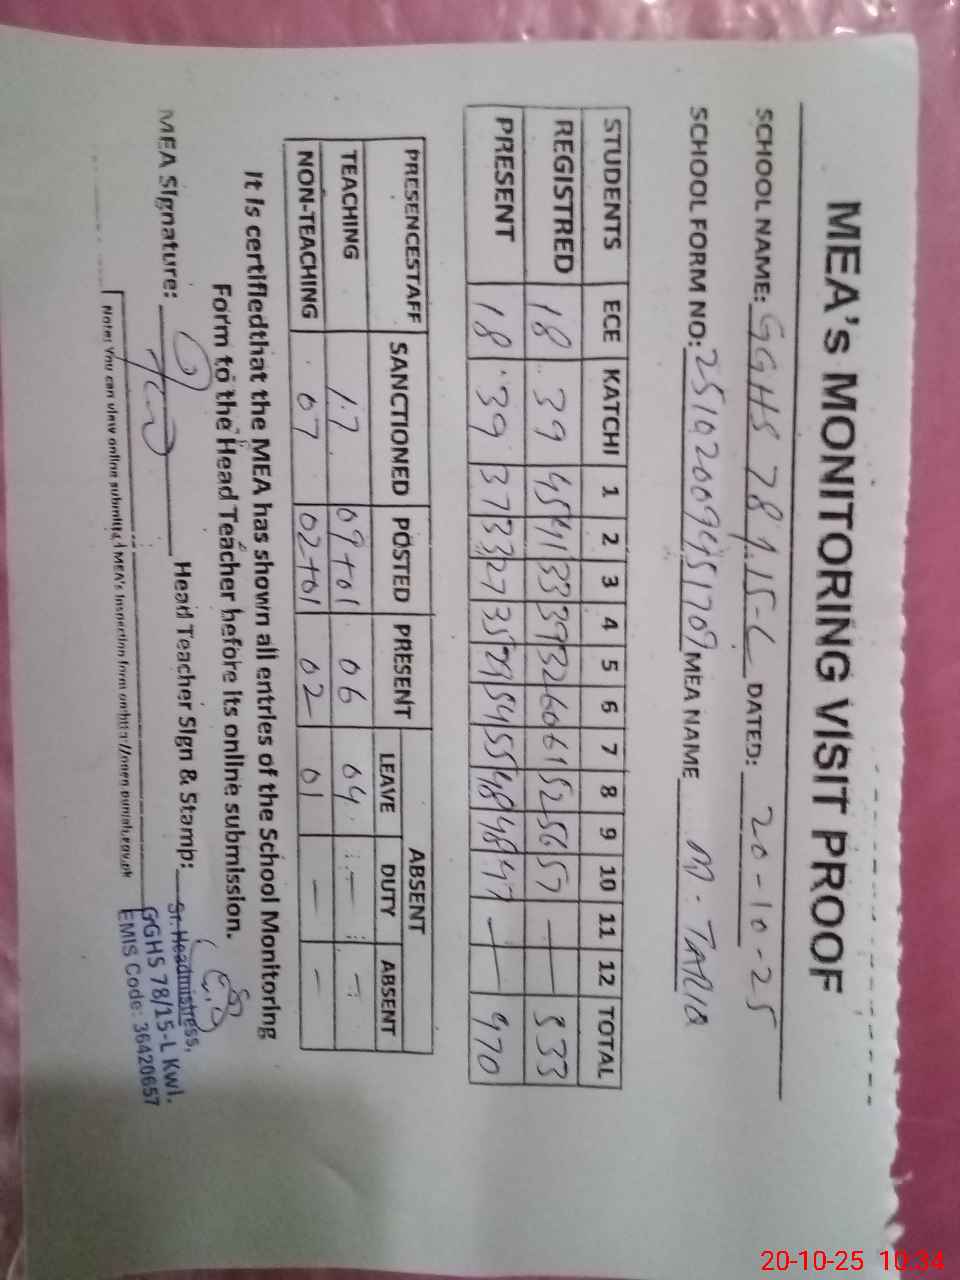 MEA's MONITORING VISIT PROOF
SCHOOL NAME: GGHS 78/15-L DATED: 20-10-25
SCHOOL FORM NO: MEA NAME M. TARIQ
STUDENTS ECE KATCHI 1 2 3 4 5 6 7 8 9 10 11 12 TOTAL
REGISTRED 18 39 45 41 33 39 32 60 61 52 56 57 — — 533
PRESENT 18 39 37 33 27 35 29 54 55 48 48 47 — — 470
PRESENCESTAFF SANCTIONED POSTED PRESENT ABSENT
LEAVE DUTY ABSENT
TEACHING 17 09+01 06 04 — —
NON-TEACHING 07 02+01 02 01 — —
It is certifiedthat the MEA has shown all entries of the School Monitoring
Form to the Head Teacher before its online submission.
MEA Signature: Head Teacher Sign & Stamp:
Sr. Headmistress,
GGHS 78/15-L Kwl.
EMIS Code: 36420657
Note: You can view online submitted MEA's Inspection form on http://open.punjab.gov.pk
20-10-25 10:34